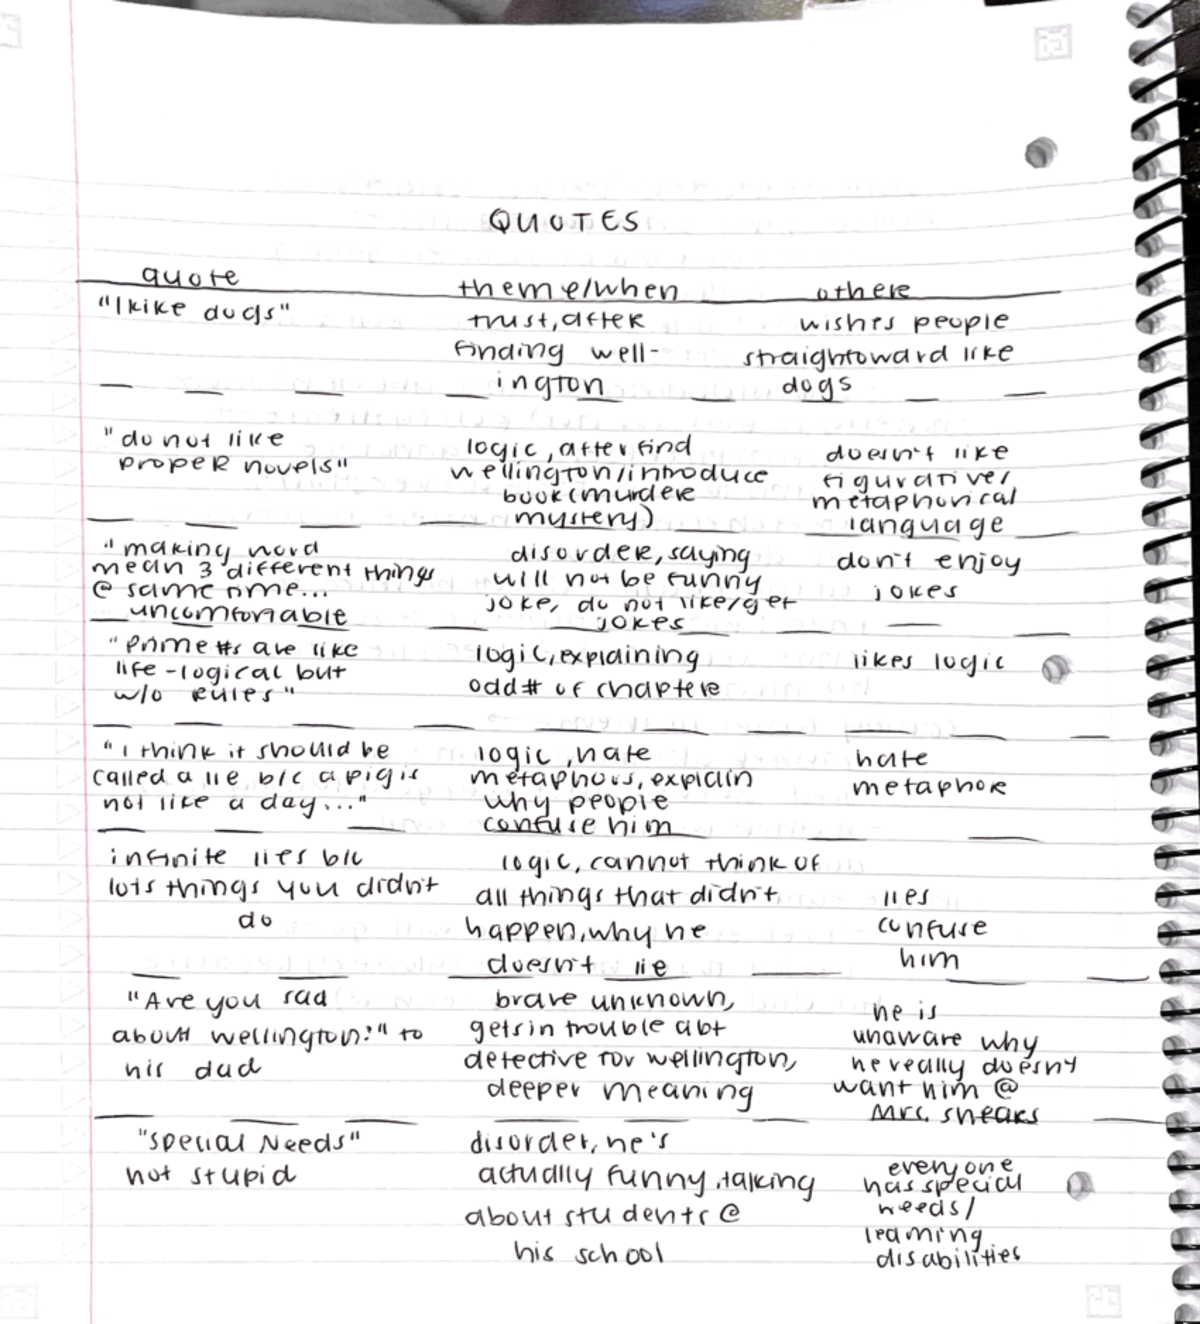 QUOTES
quote theme/when other
"I like dogs" trust, after wishes people
finding well- straightfoward like
ington dogs
"do not like logic, after find doesn't like
proper novels" wellington/introduce figurative/
book (murder metaphorical
mystery) language
"making word disorder, saying don't enjoy
mean 3 different things will not be funny jokes
@ same time... joke, do not like/get
uncomfortable jokes
"Prime #s are like logic, explaining likes logic
life - logical but odd # of chapter
w/o rules"
"I think it should be logic, hate hate
called a lie b/c a pig is metaphors, explain metaphor
not like a day..." why people
confuse him
infinite lies b/c logic, cannot think of
lots things you didn't all things that didn't lies
do happen, why he confuse
doesn't lie him
"Are you sad brave unknown, he is
about wellington?" to gets in trouble abt unaware why
his dad detective for wellington, he really doesn't
deeper meaning want him @
Mrs. shears
"Special Needs" disorder, he's everyone
not stupid actually funny, talking has special
about students @ needs/
his school learning
disabilities